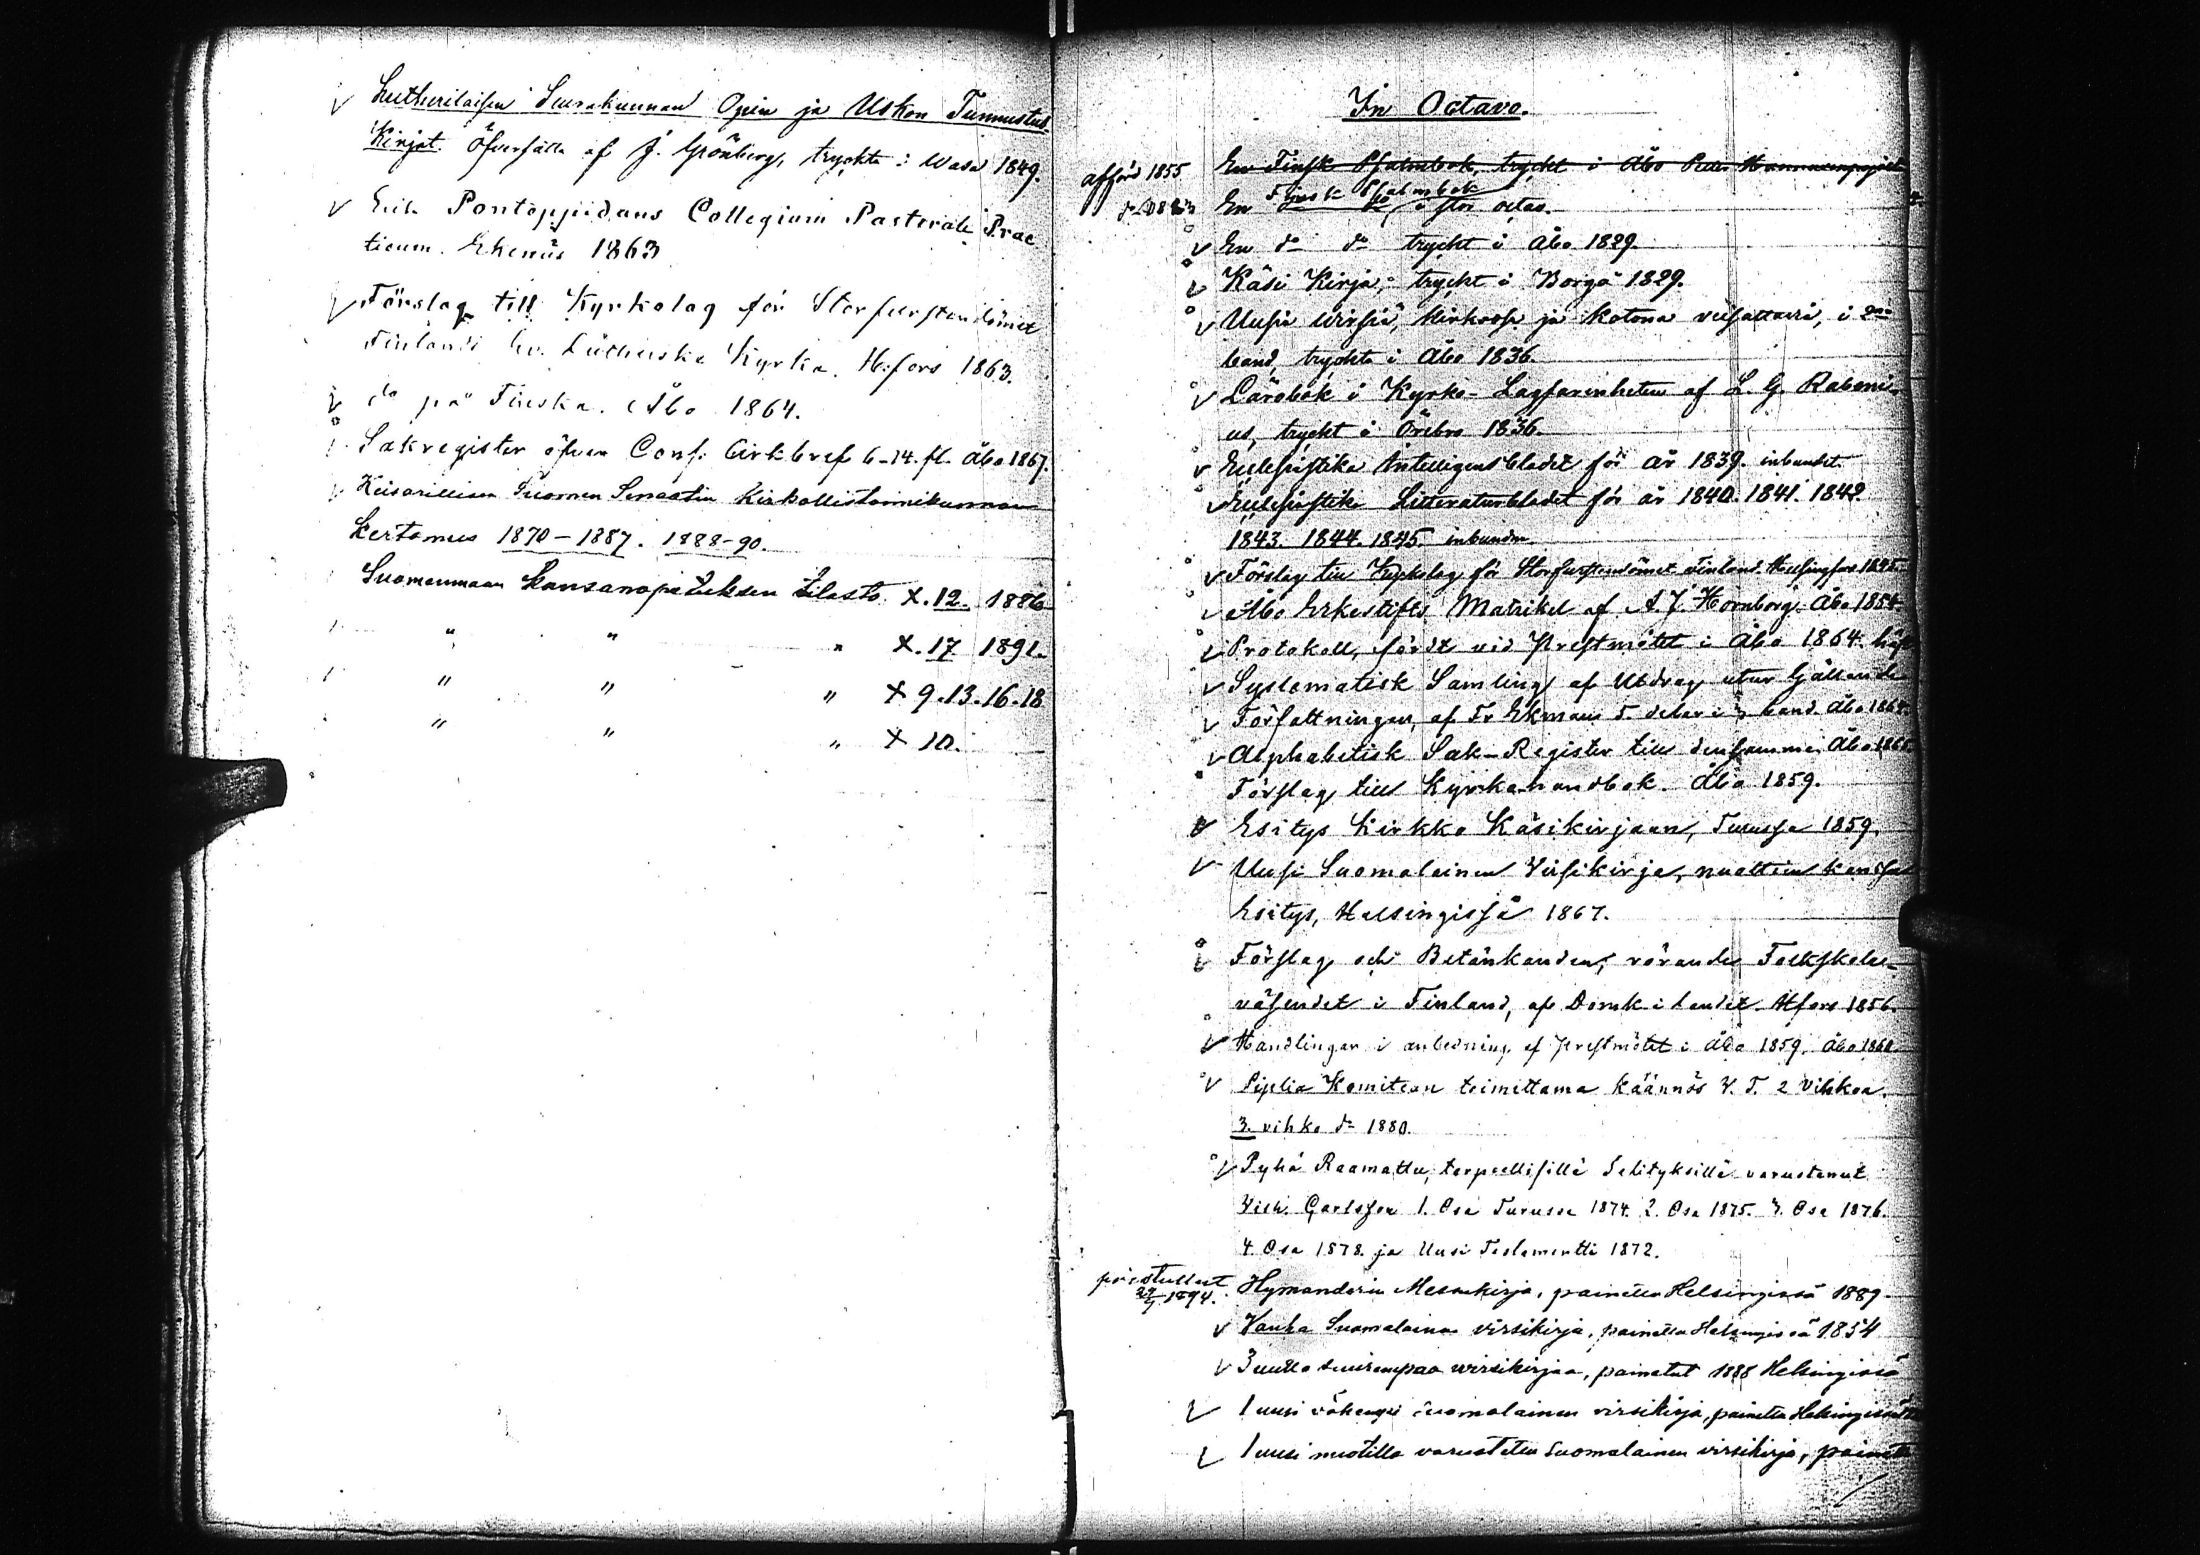 Lutherilaisen Seurakunnan Opin ja Uskon Tunnustus
Kirjat öfversätta af J. Grönberg, tryckta i Wasa 1849.
Erik Pontoppidans Collegium Pastorale Prac
ticum. Ekenäs 1863
Förslag till Kyrkolag för Storfurstendömet
Finlands Ev. Lutherska Kyrka. H:fors 1863.
do på Finska. Åbo 1864.
Sakregister öfver Cons. Cirkbref 6-14. fl. Åbo 1867.
Keisarillisen Suomen Senaatin Kirkollistoimikunnan
Kertomus 1870-1887. 1888-90.
Suomenmaan Kansanopetuksen tilasto X. 12. 1886
" " " X. 17 1891.
" " " X 9.13.16.18
" " " X 10.
In Octavo.
afförd 1855 En Finsk Psalmbok, tryckt i Åbo
En Finsk Psalmbok i stor octav.
En do do tryckt i Åbo 1829.
Käsi Kirja, tryckt i Borgå 1829.
Uusia Wirsiä, Kirkossa ja kotona veisattavia, i 2ne
band, tryckta i Åbo 1836.
Lärobok i Kyrko-Lagfarenheten af L. G. Rabeni-
us, tryckt i Örebro 1836.
Ecclesiastika Intelligensbladet för år 1839. inbundet.
Ecclesiastika Litteraturbladet för år 1840. 1841. 1842.
1843. 1844. 1845. inbundna
Förslag till Kyrkolag för Storfurstendömet Finland. Helsingfors 1845.
Åbo Erkestifts Matrikel af A. J. Hornborg Åbo 1854
Protokoll, fördt vid Prestmötet i Åbo 1864.
Systematisk Samling af Utdrag utur Gällande
Författningar, af Fr Ekman 5. delar i 3 band. Åbo
Alphabetisk Sak-Register till densamma. Åbo
Förslag till Kyrkohandbok. Åbo 1859.
Esitys Kirkko Käsikirjaan, Turussa 1859.
Uusi Suomalainen Virsikirja, nuottein kanssa
Esitys, Helsingissä 1867.
Förslag och Betänkanden, rörande Folkskole-
väsendet i Finland, af Domk i landet. Hfors 1856.
Handlingar i anledning af prestmötet i Åbo 1859. Åbo 1860.
Piplia Komitean toimittama käännös V. T. 2 Vihkoa.
3. vihko do 1880.
Pyhä Raamattu, tarpeellisillä Selityksillä varustanut
Wilh. Carlsson 1. Osa Turussa 1874. 2. Osa 1875. 3. Osa 1876.
4. Osa 1878. ja Uusi Testamentti 1872.
poistullut Hymanderin Messukirja, painettu Helsingissä 1889
1894.
Vanha Suomalainen virsikirja, painettu Helsingissä 1854
3 uutta suurempaa virsikirjaa, painetut 1888 Helsingissä
1 uusi vähempi suomalainen virsikirja, painettu Helsingissä
1 uusi nuotilla varustettu Suomalainen virsikirja,